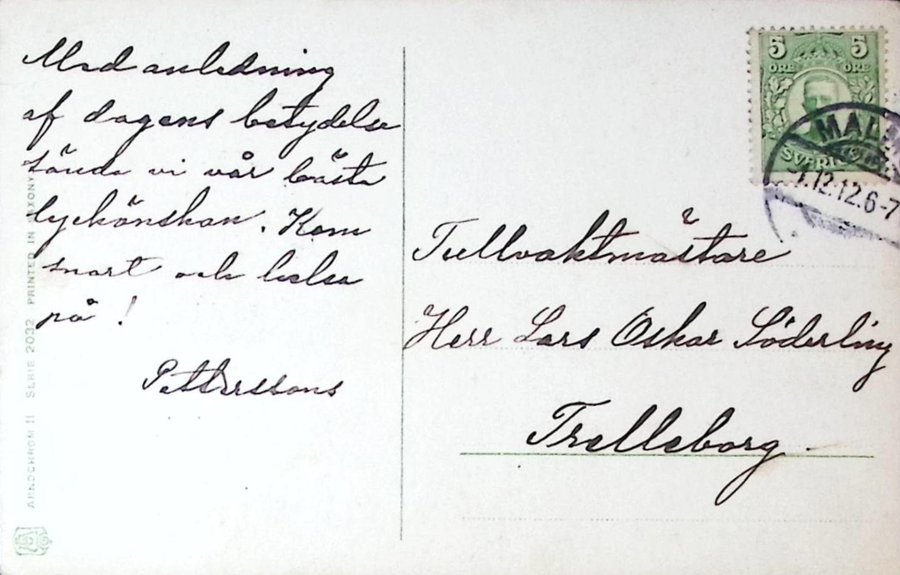 Med anledning
af dagens betydelse
sända vi vår bästa
lyckönskan. Kom
snart och helsa
på!
Petterssons
5 5
ÖRE ÖRE
SVERIGE
MALMÖ
.12.12.6-7
Tullvaktmästare
Herr Lars Oskar Söderling
Trelleborg
SERIE 2032 PRINTED IN SAXONY